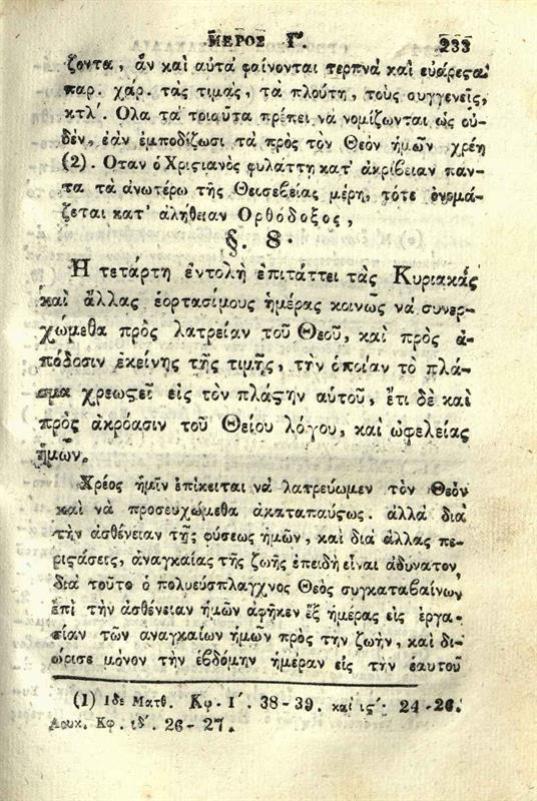 ΜΕΡΟΣ Γ'. 233
ζοντα, ἂν καὶ αὐτὰ φαίνονται τερπνὰ καὶ εὐάρεςα·
παρ. χάρ. τὰς τιμὰς, τὰ πλούτη, τοὺς συγγενεῖς,
κτλ'. Ολα τὰ τοιαῦτα πρέπει νὰ νομίζωνται ὡς οὐ-
δὲν, ἐὰν ἐμποδίζωσι τὰ πρὸς τὸν Θεὸν ἡμῶν χρέη
(2). Οταν ὁ Χριςιανὸς φυλάττῃ κατ' ἀκρίβειαν παν-
τα τὰ ἀνωτέρω τῆς Θεισεβείας μέρη, τότε ὀνομά-
ζεται κατ' ἀλήθειαν Ορθόδοξος,
§. 8.
Η τετάρτη ἐντολὴ ἐπιτάττει τὰς Κυριακὰς
καὶ ἄλλας ἑορτασίμους ἡμέρας κοινῶς νὰ συνερ-
χώμεθα πρὸς λατρείαν τοῦ Θεοῦ, καὶ πρὸς ἀ-
πόδοσιν ἐκείνης τῆς τιμῆς, τὴν ὁποίαν τὸ πλά-
σμα χρεωςεῖ εἰς τὸν πλάςην αὑτοῦ, ἔτι δὲ καὶ
πρὸς ἀκρόασιν τοῦ Θείου λόγου, καὶ ὠφελείας
ἡμῶν.
Χρέος ἡμῖν ἐπίκειται νὰ λατρεύωμεν τὸν Θεὸν
καὶ νὰ προσευχώμεθα ἀκαταπαύςως. ἀλλὰ διὰ
τὴν ἀσθένειαν τῆς φύσεως ἡμῶν, καὶ διὰ ἄλλας πε-
ριςάσεις, ἀναγκαίας τῆς ζωῆς ἐπειδὴ εἶναι ἀδύνατον,
διὰ τοῦτο ὁ πολυεύσπλαγχνος Θεὸς συγκαταβαίνων
ἐπὶ τὴν ἀσθένειαν ἡμῶν ἀφῆκεν ἓξ ἡμέρας εἰς ἐργα-
σίαν τῶν ἀναγκαίων ἡμῶν πρὸς τὴν ζωὴν, καὶ δι-
ώρισε μόνον τὴν ἑβδόμην ἡμέραν εἰς τὴν ἑαυτοῦ
(1) Ιδε Ματθ. Κφ. Ι'. 38-39. καὶ ις': 24-26.
Λουκ. Κφ. ιδ'. 26-27.